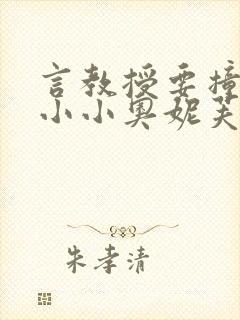 言教授要撞
小小奥妮芙
朱孝清